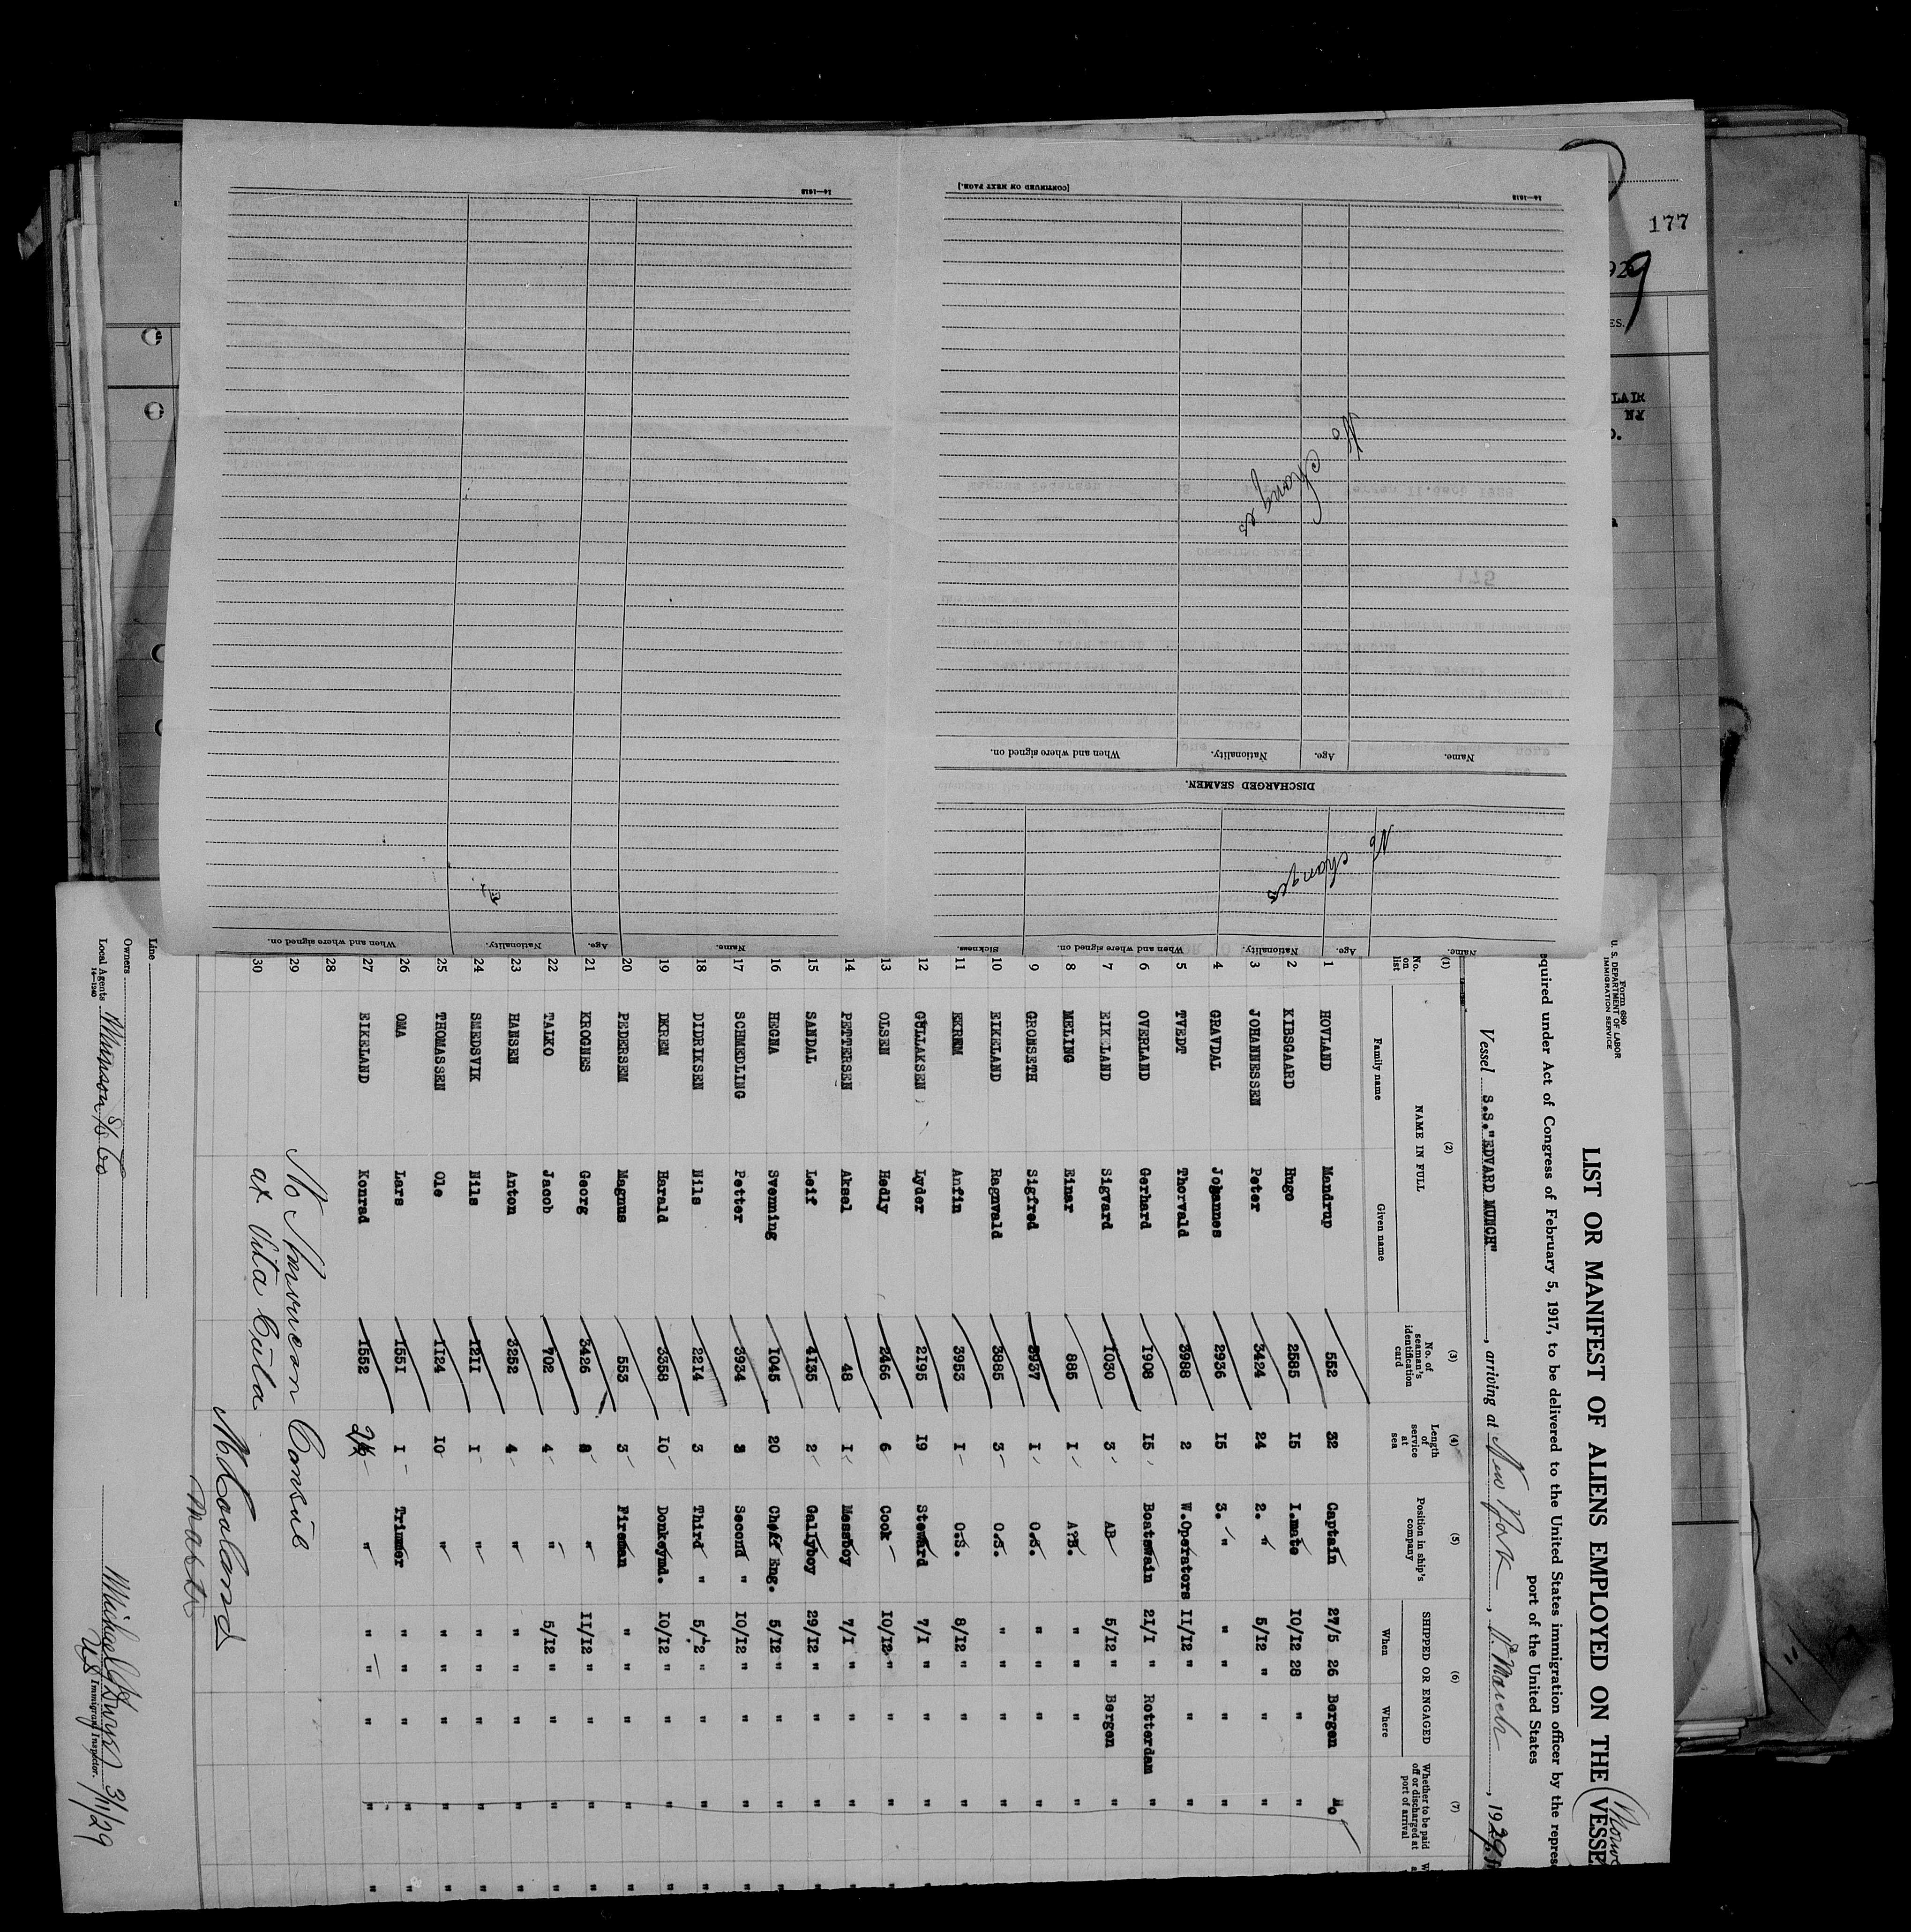 177
929
ES.
LAIR
14—1618
[CONTINUED ON NEXT PAGE.]
14—1618
No Changes
175
Name. Age. Nationality. When and where signed on.
DISCHARGED SEAMEN.
No changes
Name. Age. Nationality. When and where signed on. Sickness.
Name. Age. Nationality. When and where signed on.
Form 680
U. S. DEPARTMENT OF LABOR
IMMIGRATION SERVICE
LIST OR MANIFEST OF ALIENS EMPLOYED ON THE VESSE
quired under Act of Congress of February 5, 1917, to be delivered to the United States immigration officer by the repres
port of the United States
Vessel S.S."EDVARD MUNCH", arriving at New York, 1st March, 1929
(1) (2) (3) (4) (5) (6) (7)
No. on list NAME IN FULL No. of seaman's identification card Length of service at sea Position in ship's company SHIPPED OR ENGAGED Whether to be paid off or discharged at port of arrival
Family name Given name When Where
1 HOVLAND Mandrup 552 32 Captain 27/5 26 Bergen No
2 KIBSGAARD Hugo 2585 15 I.mate 10/12 28 " "
3 JOHANNESSEN Peter 3424 24 2. " 5/12 " " "
4 GRAVDAL Johannes 2936 15 3. " " " " "
5 TVEDT Thorvald 3988 2 W.Operators 11/12 " " "
6 OVERLAND Gerhard 1908 15 Boatswain 21/1 " Rotterdam "
7 EIKELAND Sigvard 1030 3 AB 5/12 " Bergen "
8 MELING Einar 885 I A?B. " " " "
9 GRONSETH Sigfred 3937 I O.S. " " " "
10 EIKELAND Ragnvald 3885 3 O.S. " " " "
11 EKREM Anfin 3953 I O.S. 8/12 " " "
12 GULLAKSEN Lyder 2195 19 Steward 7/I " " "
13 OLSEN Hedly 2466 6 Cook 10/12 " " "
14 PETTERSEN Aksel 48 I Messboy 7/I " " "
15 SANDAL Leif 4135 2 Gallyboy 29/12 " " "
16 HEGNA Svenning 1045 20 Cheff Eng. 5/12 " " "
17 SCHMEDLING Petter 3934 3 Second " 10/12 " " "
18 DIDRIKSEN Nils 2214 3 Third " 5/12 " " "
19 EKREM Harald 3358 10 Donkeymd. 10/12 " " "
20 PEDERSEM Magnus 553 3 Fireman " " " "
21 KROGNES Georg 3426 " 11/12 " " "
22 TALKO Jacob 702 4 " 5/12 " " "
23 HANSEN Anton 3252 4 " " " " "
24 SMEDSVIK Nils 1211 I " " " " "
25 THOMASSEN Ole 1124 10 " " " " "
26 OMA Lars 1551 I Trimmer " " " "
27 EIKELAND Konrad 1552 " " " " "
28
29
30
No American Consul
at Vita Cuba
M Hovland
Master
Line
Owners
Local Agents Munson S/S Co
14—1240
3/1/29
US Immigrant Inspector.